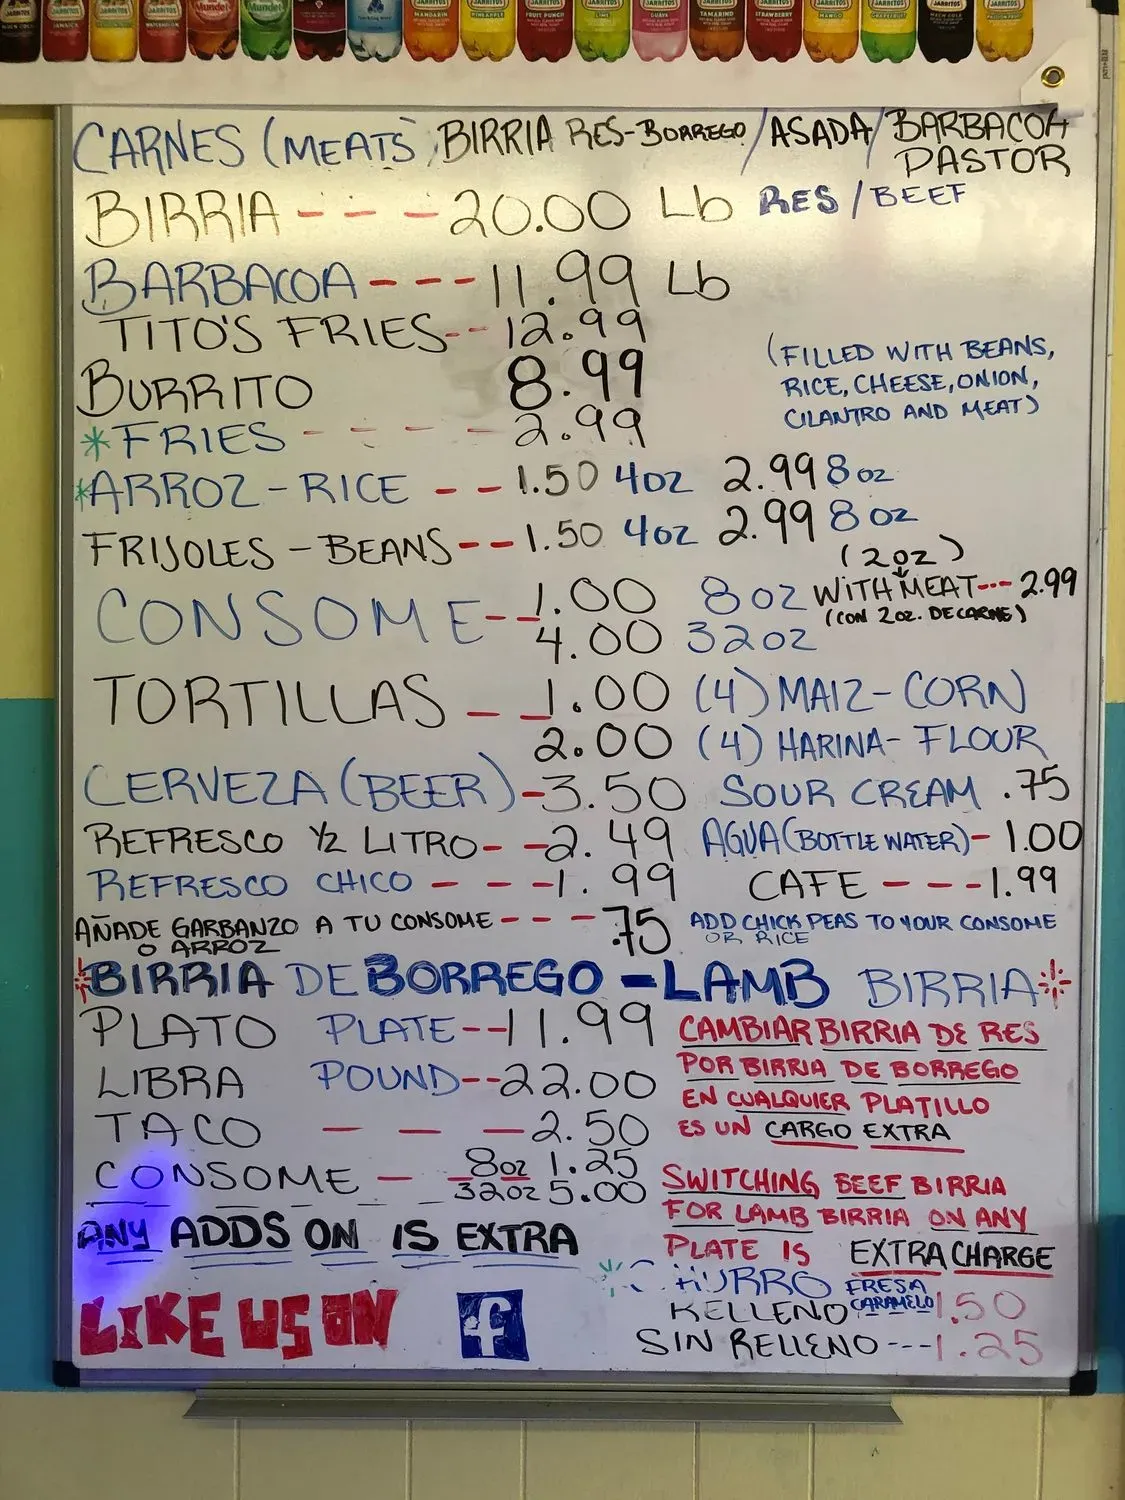 JARRITOS JARRITOS JARRITOS JARRITOS Mundet Mundet JARRITOS JARRITOS JARRITOS JARRITOS JARRITOS JARRITOS JARRITOS JARRITOS JARRITOS JARRITOS
MANDARIN PINEAPPLE FRUIT PUNCH LIME GUAVA TAMARIND STRAWBERRY MANGO GRAPEFRUIT MEXICAN COLA PASSION FRUIT
CARNES (MEATS) BIRRIA RES-BORREGO / ASADA / BARBACOA
PASTOR
BIRRIA - - - 20.00 Lb RES / BEEF
BARBACOA - - - 11.99 Lb
TITO'S FRIES - - 12.99
BURRITO 8.99 (FILLED WITH BEANS,
RICE, CHEESE, ONION,
CILANTRO AND MEAT)
*FRIES - - - - 2.99
*ARROZ - RICE - - 1.50 4oz 2.99 8oz
FRIJOLES - BEANS - - 1.50 4oz 2.99 8oz
(2oz)
CONSOME - - 1.00 8oz WITH MEAT --- 2.99
(CON 2oz. DE CARNE)
4.00 32oz
TORTILLAS - - 1.00 (4) MAIZ - CORN
2.00 (4) HARINA - FLOUR
CERVEZA (BEER) - 3.50 SOUR CREAM .75
REFRESCO 1/2 LITRO - - 2.49 AGUA (BOTTLE WATER) - 1.00
REFRESCO CHICO - - - 1.99 CAFE - - - 1.99
AÑADE GARBANZO A TU CONSOME - - - .75 ADD CHICK PEAS TO YOUR CONSOME
O ARROZ OR RICE
BIRRIA DE BORREGO - LAMB BIRRIA
PLATO PLATE - - 11.99
LIBRA POUND - - 22.00
TACO - - - 2.50
CONSOME - 8oz 1.25
32oz 5.00
CAMBIAR BIRRIA DE RES
POR BIRRIA DE BORREGO
EN CUALQUIER PLATILLO
ES UN CARGO EXTRA
SWITCHING BEEF BIRRIA
FOR LAMB BIRRIA ON ANY
PLATE IS EXTRA CHARGE
ANY ADDS ON IS EXTRA
CHURRO FRESA
RELLENO CARAMELO 1.50
SIN RELLENO --- 1.25
LIKE US ON f